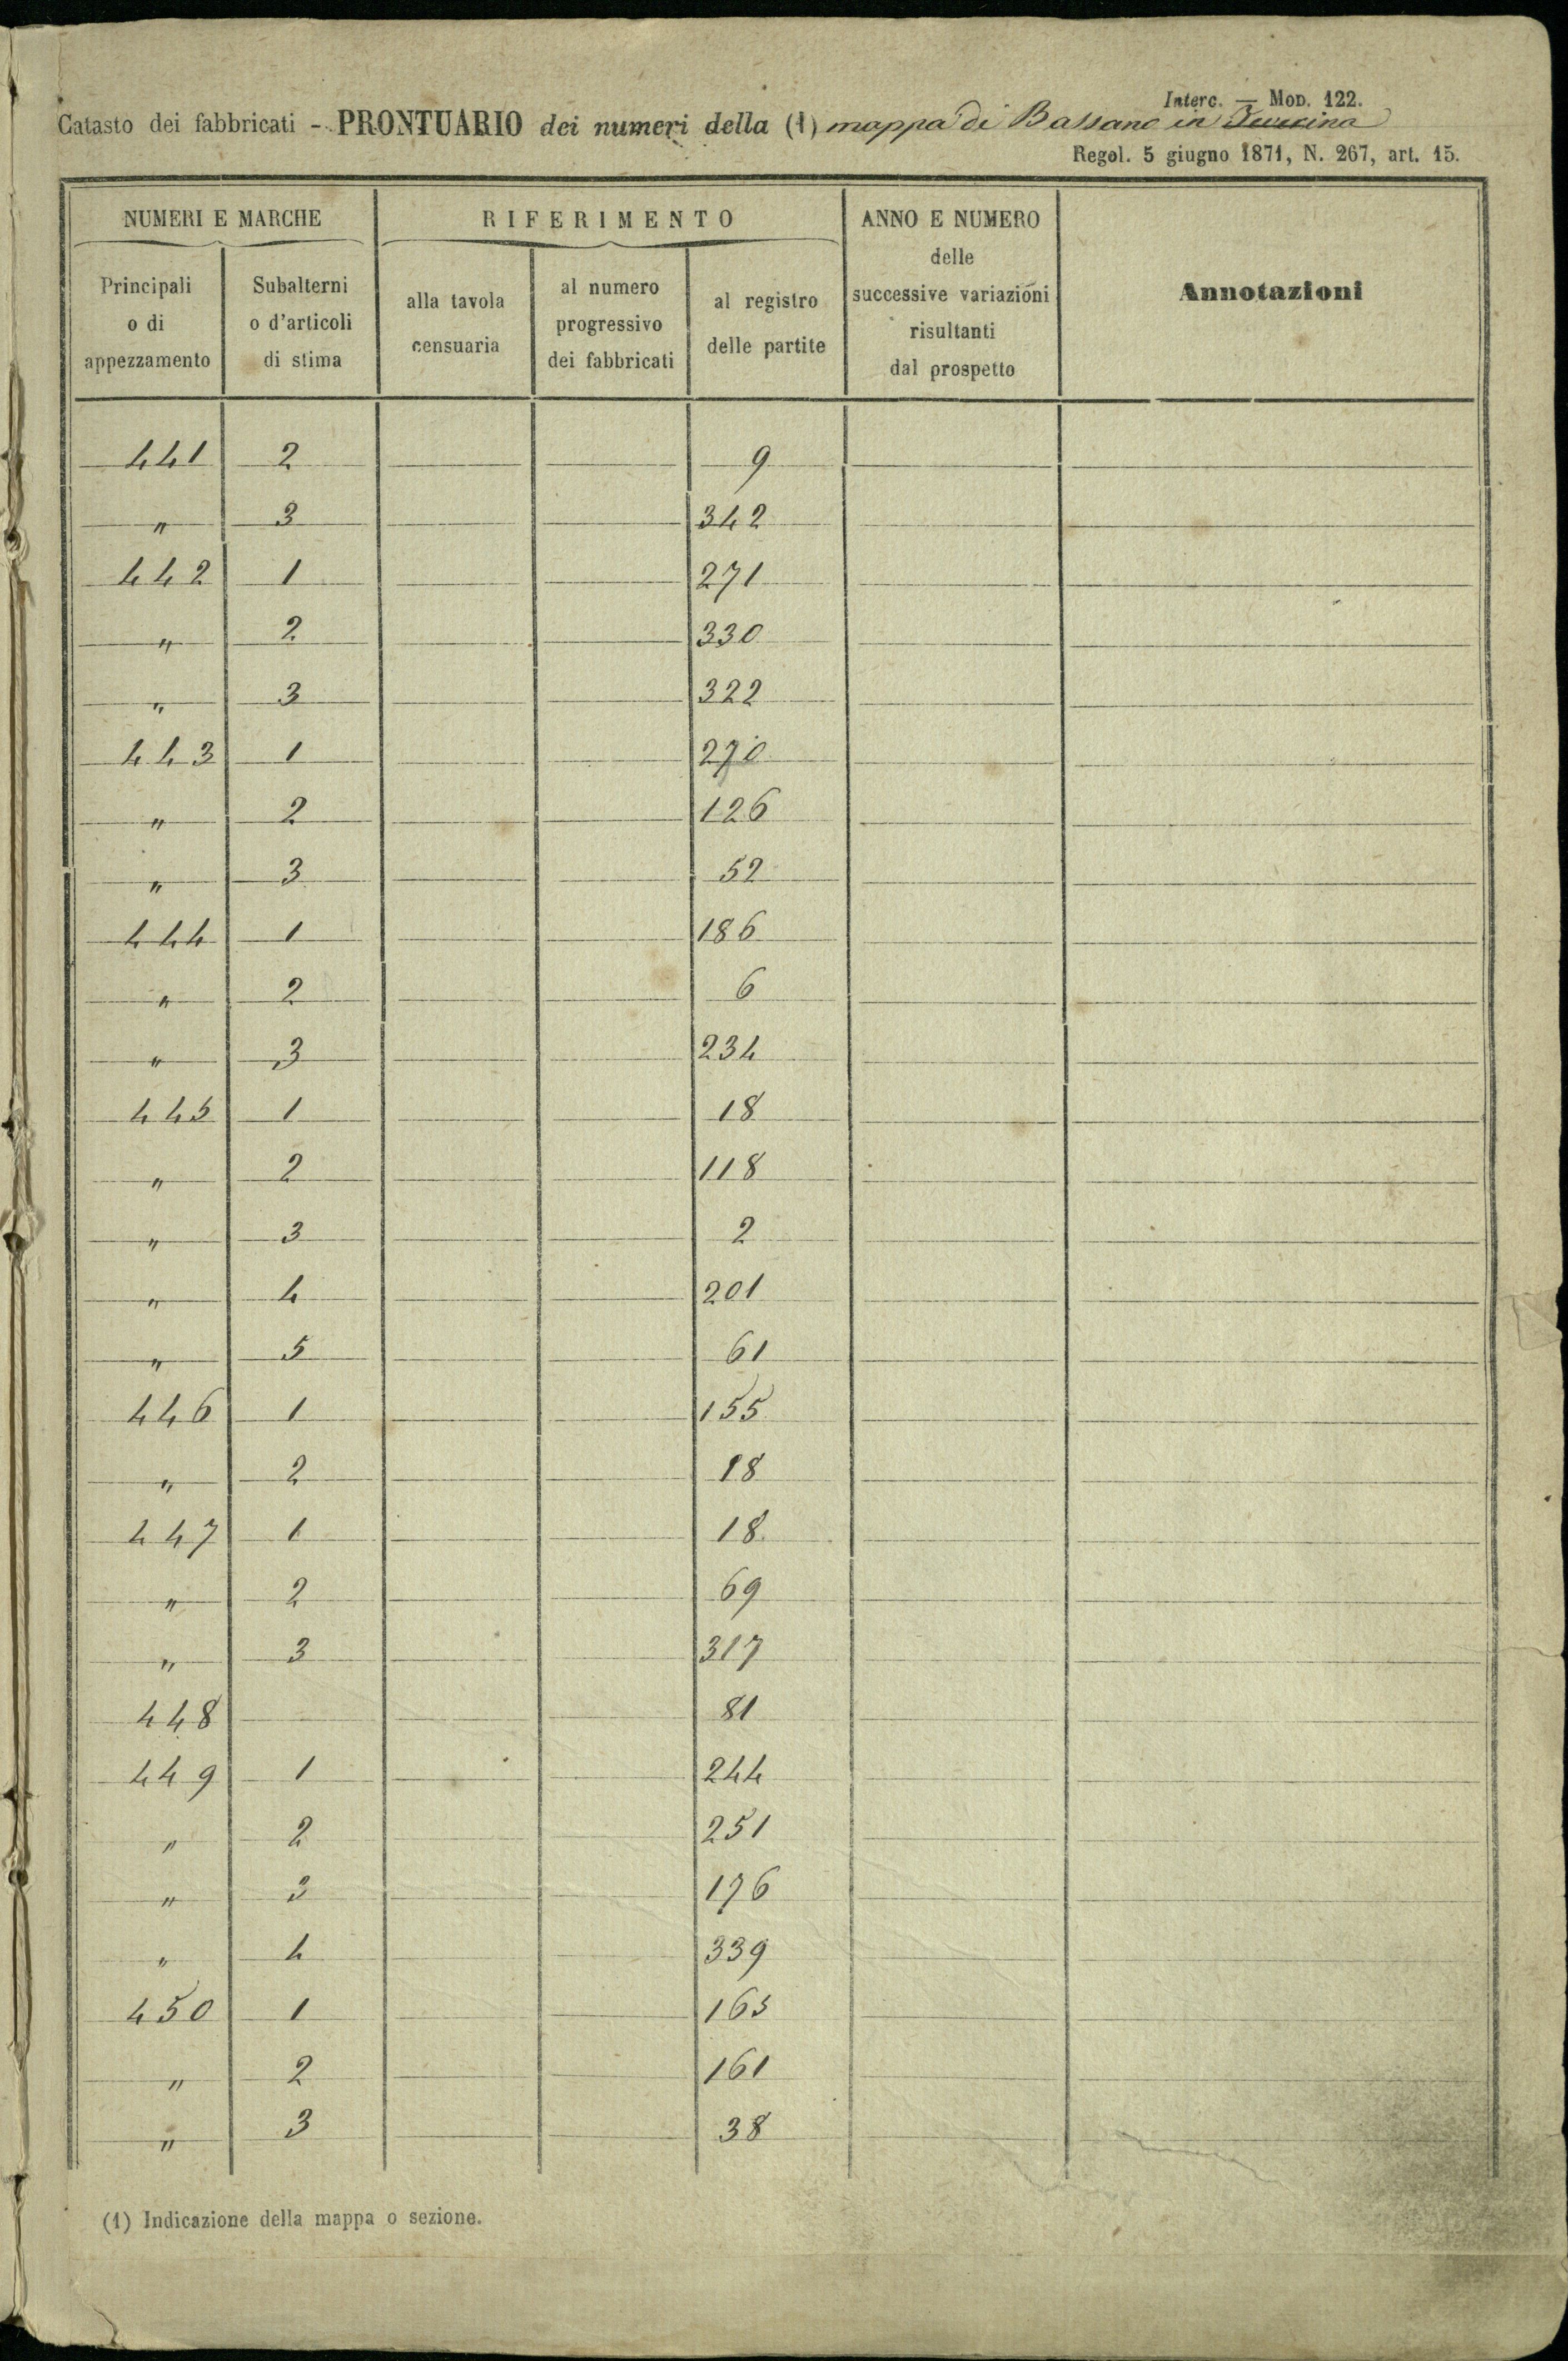 Interc. — Mod. 122.
Catasto dei fabbricati - PRONTUARIO dei numeri della (1) mappa di Bassano in
Regol. 5 giugno 1871, N. 267, art. 15.
NUMERI E MARCHE RIFERIMENTO ANNO E NUMERO delle successive variazioni risultanti dal prospetto Annotazioni
Principali o di appezzamento Subalterni o d'articoli di stima alla tavola censuaria al numero progressivo dei fabbricati al registro delle partite
441 2 9
" 3 342
442 1 271
" 2 330
" 3 322
443 1 270
" 2 126
" 3 52
444 1 186
" 2 6
" 3 234
445 1 18
" 2 118
" 3 2
" 4 201
" 5 61
446 1 155
" 2 18
447 1 18
" 2 69
" 3 317
448 81
449 1 244
" 2 251
" 3 176
" 4 339
450 1 165
" 2 161
" 3 38
(1) Indicazione della mappa o sezione.